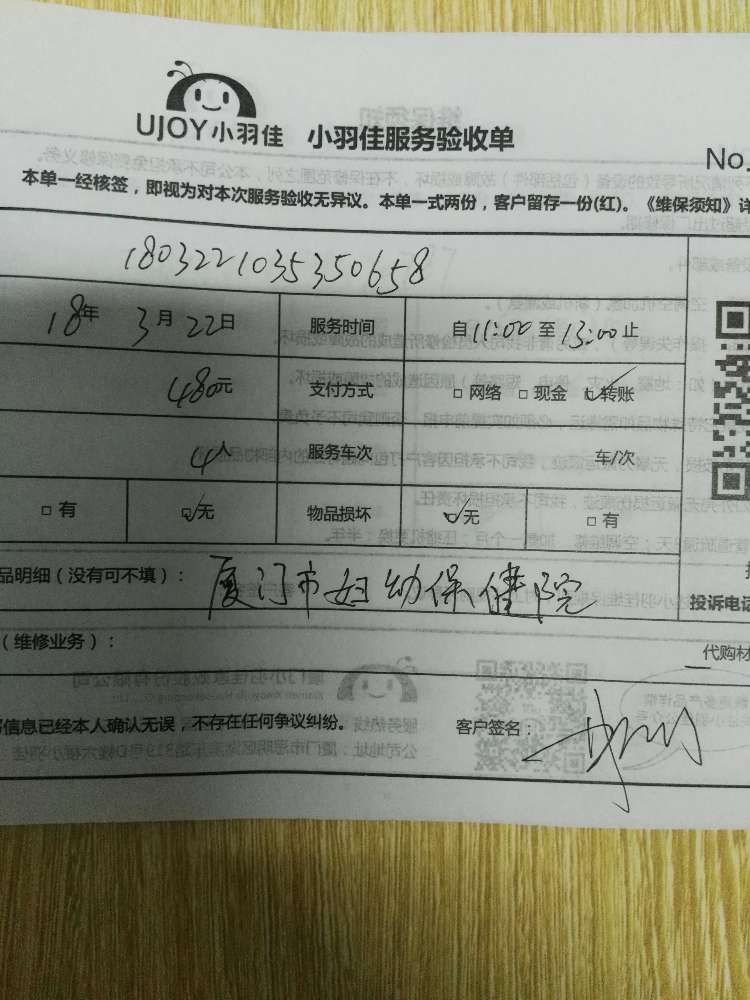 UJOY小羽佳 小羽佳服务验收单
No.
本单一经核签，即视为对本次服务验收无异议。本单一式两份，客户留存一份(红)。《维保须知》详
180322103535065８
18年 3月 22日 服务时间 自 11:00 至 13:00 止
480元 支付方式 □ 网络 □ 现金 ☑ 转账
4人 服务车次 车/次
□ 有 ☑ 无 物品损坏 ☑ 无 □ 有
品明细（没有可不填）： 厦门市妇幼保健院
投诉电话
（维修业务）：
代购材
信息已经本人确认无误，不存在任何争议纠纷。 客户签名：